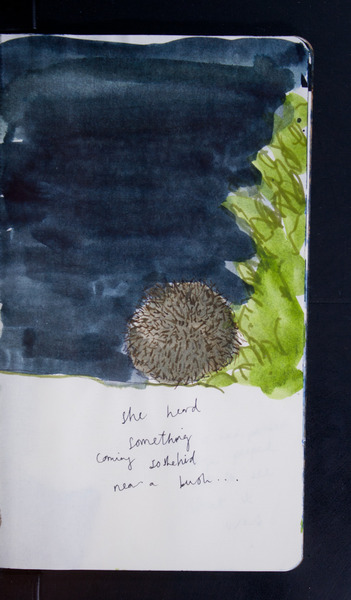 she heard
something
coming so she hid
near a bush...